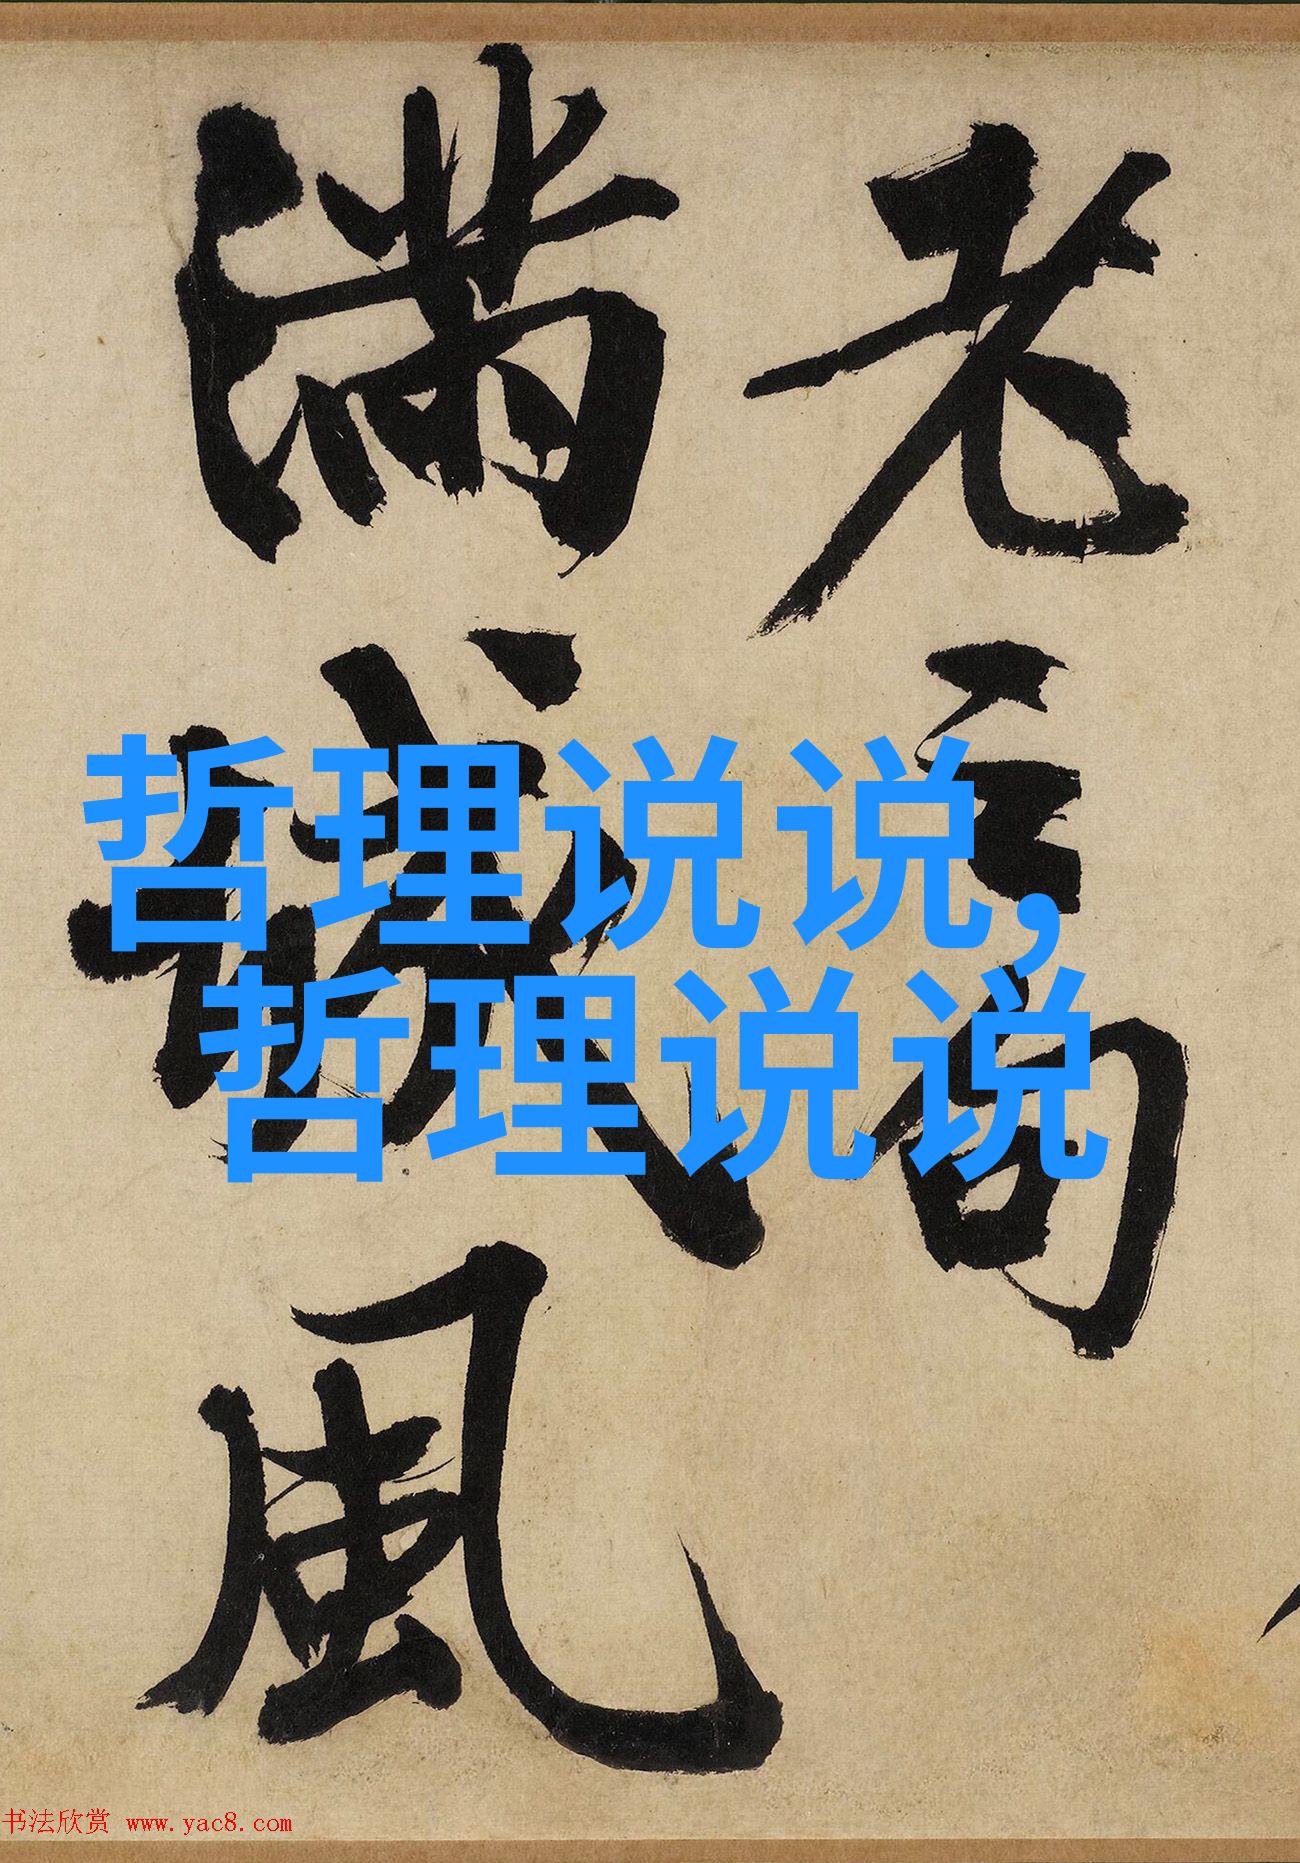 哲理说说，
哲理说说
老
滿城風
书法欣赏 www.yac8.com